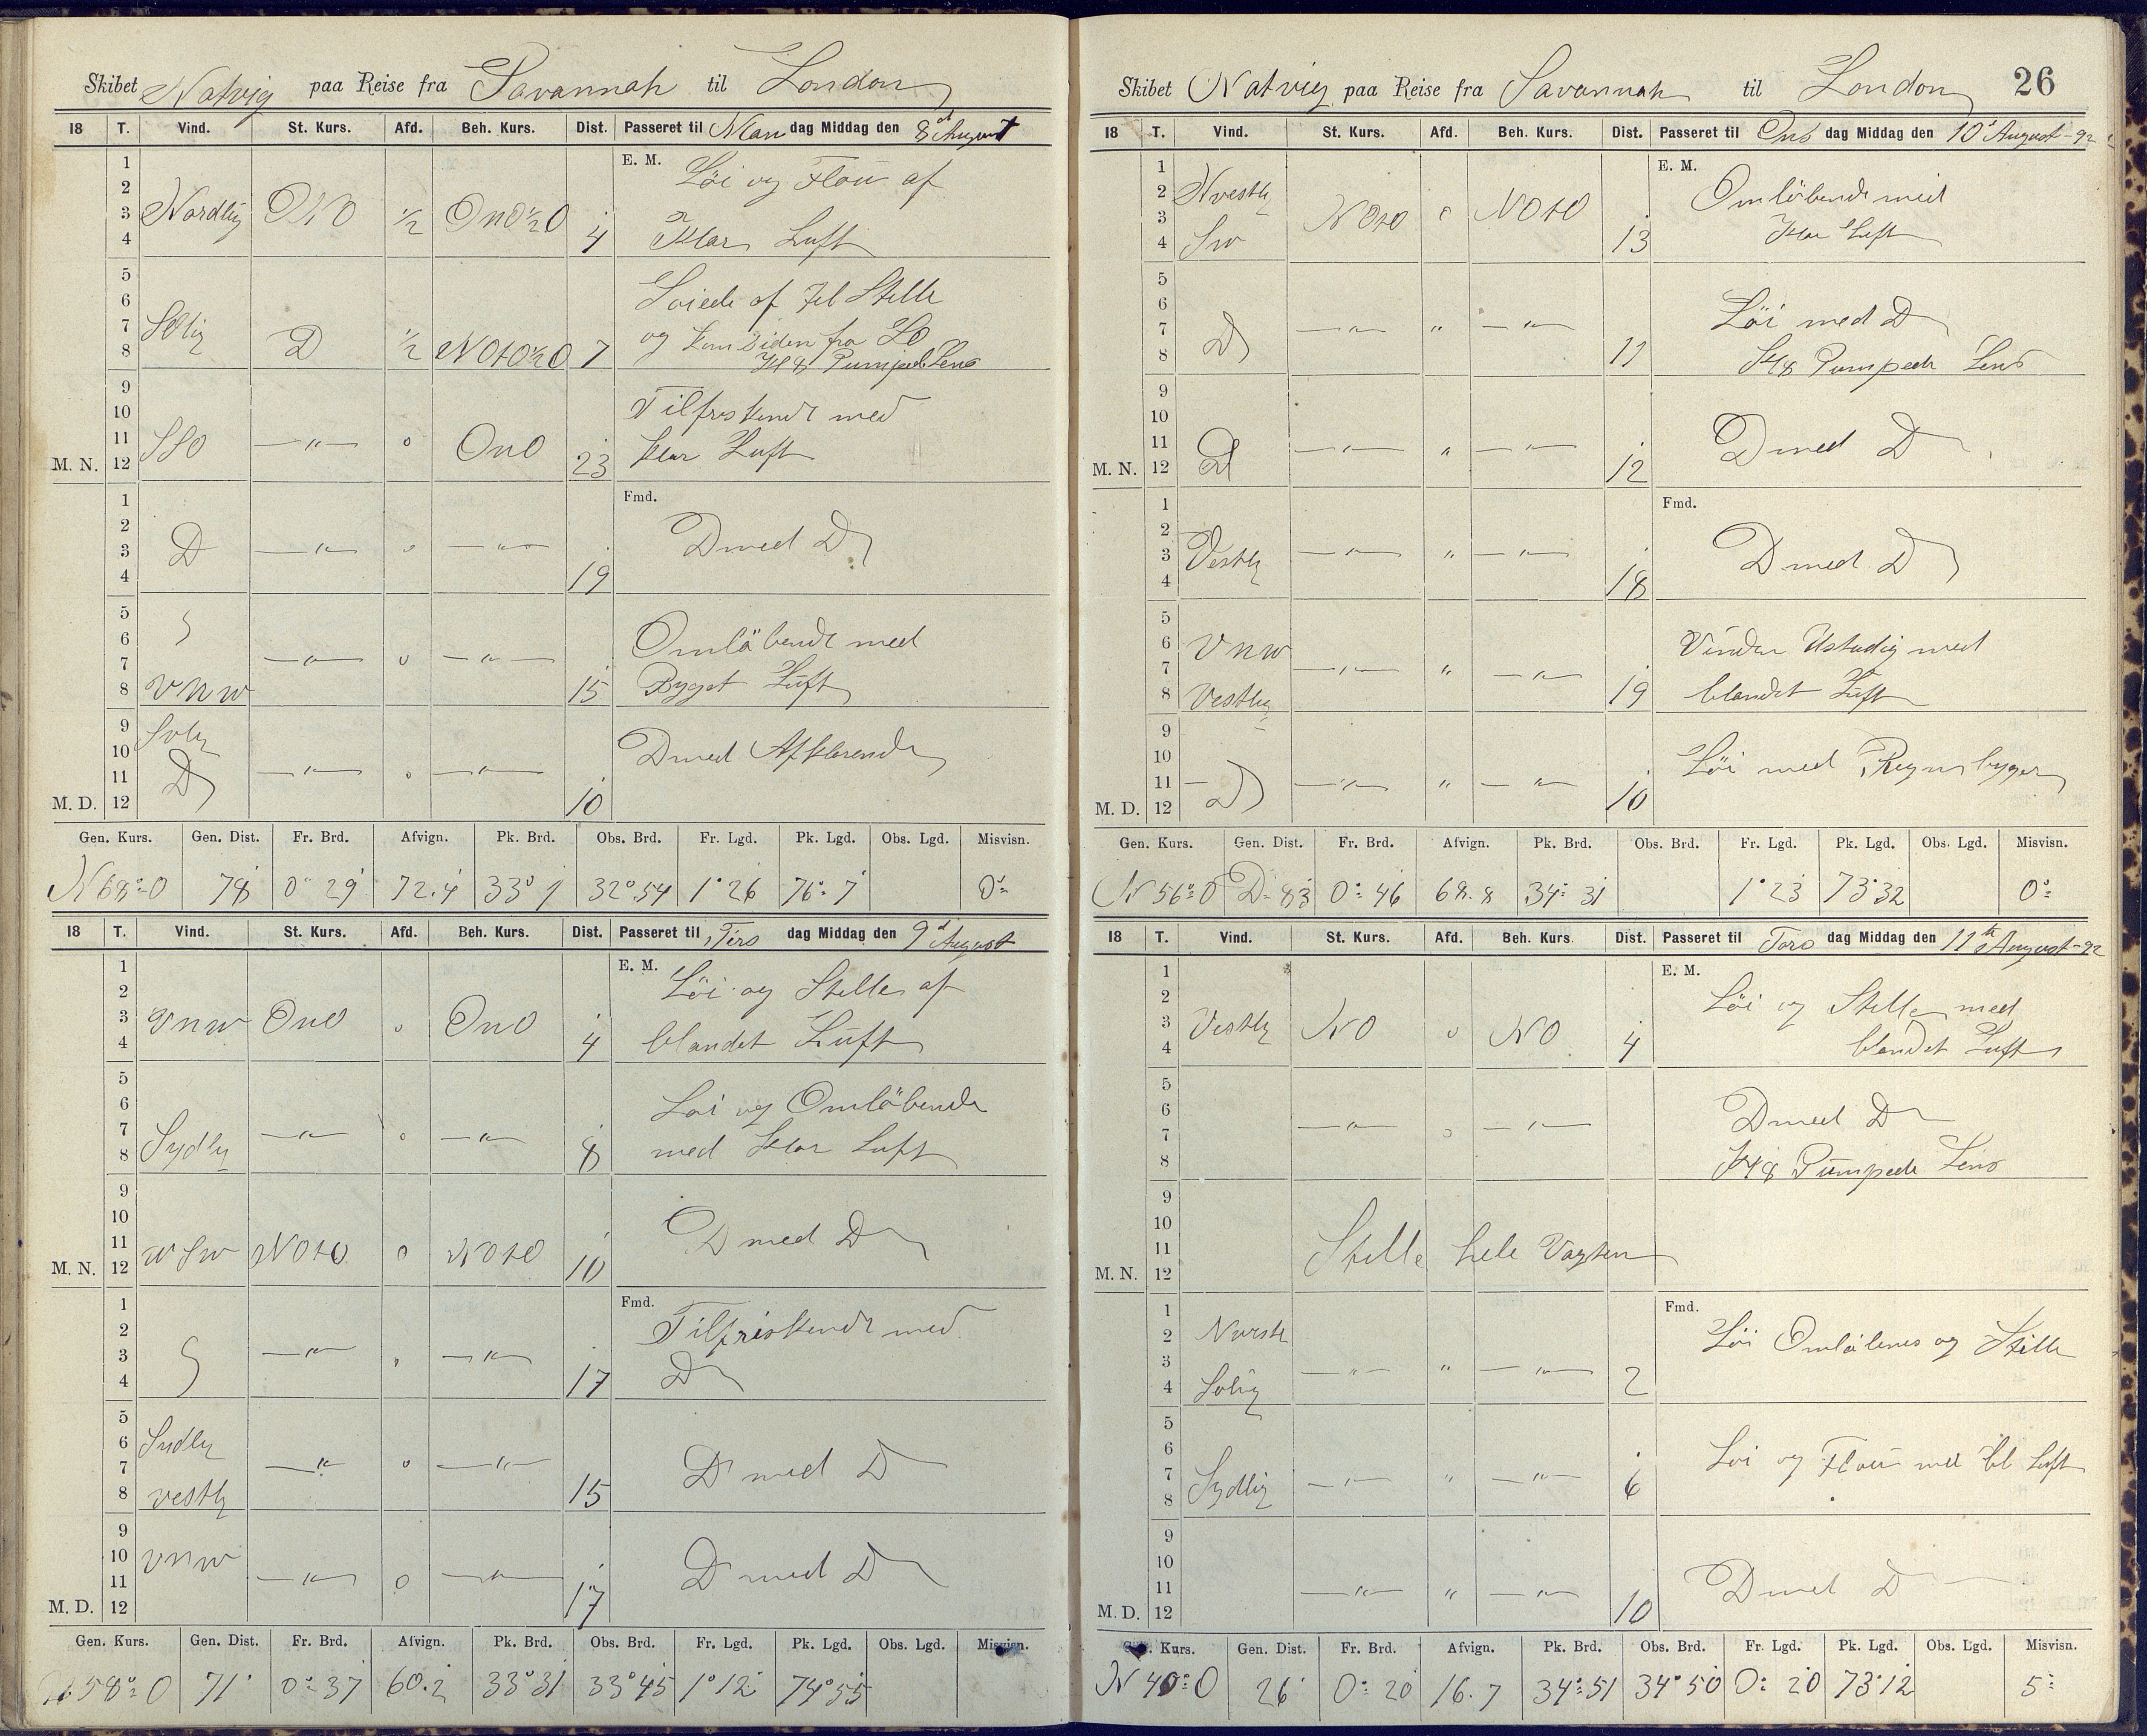 Skibet Natvig paa Reise fra Savannah til London
18 T. Vind. St. Kurs. Afd. Beh. Kurs. Dist. Passeret til Man dag Middag den 8d August
1 E. M. Löi og Flau af
2
3 Nordlig ONO 1/2 OnO1/2O
4 4 Klar Luft
5
6 af til Stille
7 SOlig og kom siden fra SO
8 D 1/2 NOtO1/2O 7 Kl 8 Pumpede Lens
9
10 Tilfriskende med
11 SSO —"— o OnO
M. N. 12 23 klar Luft
1 Fmd.
2
3 D —"— o —"— D med D
4 19
5
6 S Omlöbende med
7 —"— o —"—
8 VNW 15 Byget Luft
9
10 D med Afklarende
11 D —"— o —"—
M. D. 12 10
Gen. Kurs. Gen. Dist. Fr. Brd. Afvign. Pk. Brd. Obs. Brd. Fr. Lgd. Pk. Lgd. Obs. Lgd. Misvisn.
N 68° O 78 0° 29 72.4 33° 1 32° 54 1° 26 76° 7 0°
18 T. Vind. St. Kurs. Afd. Beh. Kurs. Dist. Passeret til Tirs dag Middag den 9d August
1 E. M. Löi og Stille af
2
3 VNW OnO o OnO
4 4 blandet Luft
5
6 Löi og Omlöbende
7 —"— o —"—
8 Sydlig 8 med klar Luft
9
10
11 WSW NOtO o NOtO D med D
M. N. 12 10
1 Fmd. Tilfriskende med
2
3 S —"— " —"— D
4 17
5
6 Sydlig
7 —"— o —"— D med D
8 vestlig 15
9
10 VNW D med D
11 —"— o —"—
M. D. 12 17
Gen. Kurs. Gen. Dist. Fr. Brd. Afvign. Pk. Brd. Obs. Brd. Fr. Lgd. Pk. Lgd. Obs. Lgd. Misvisn.
N 58° O 71 0° 37 60.2 33° 31 33° 45 1° 12 74° 55
Skibet Natvig paa Reise fra Savannah til London 26
18 T. Vind. St. Kurs. Afd. Beh. Kurs. Dist. Passeret til Ons dag Middag den 10d August - 92
1 E. M.
2 Omlöbende med
3 NOtO o NOtO
4 SW 13 klar Luft
5
6 Löi med D
7 D —"— " —"—
8 11 Kl 8 Pumpede Lens
9
10
11 D —"— " —"— D med D
M. N. 12 12
1 Fmd.
2
3 Vestlig —"— " —"— D med D
4 18
5
6 VNW Vinden Ustadig med
7 —"— " —"—
8 Vestlig 19 blandet Luft
9
10 Löi med Regnbyger
11 D —"— " —"—
M. D. 12 10
Gen. Kurs. Gen. Dist. Fr. Brd. Afvign. Pk. Brd. Obs. Brd. Fr. Lgd. Pk. Lgd. Obs. Lgd. Misvisn.
N 56° O D= 83 0° 46 68.8 34° 31 1° 23 73° 32 0°
18 T. Vind. St. Kurs. Afd. Beh. Kurs. Dist. Passeret til Tors dag Middag den 11th August - 92
1 E. M.
2 Löi og Stille med
3 Vestlig NO o NO
4 4 blandet Luft
5
6 D med D
7 —"— o —"—
8 Kl 8 Pumpede Lens
9
10
11 Stille hele Vagten
M. N. 12
1 Fmd.
2 Löi og Stille
3 —"— " —"—
4 Solig 2
5
6 Löi og Flau med bl Luft
7 Sydlig —"— " —"—
8 6
9
10
11 —"— " —"— D med D
M. D. 12 10
Kurs. Gen. Dist. Fr. Brd. Afvign. Pk. Brd. Obs. Brd. Fr. Lgd. Pk. Lgd. Obs. Lgd. Misvisn.
N 40° O 26 0° 20 16.7 34° 51 34° 50 0° 20 73° 12 5°